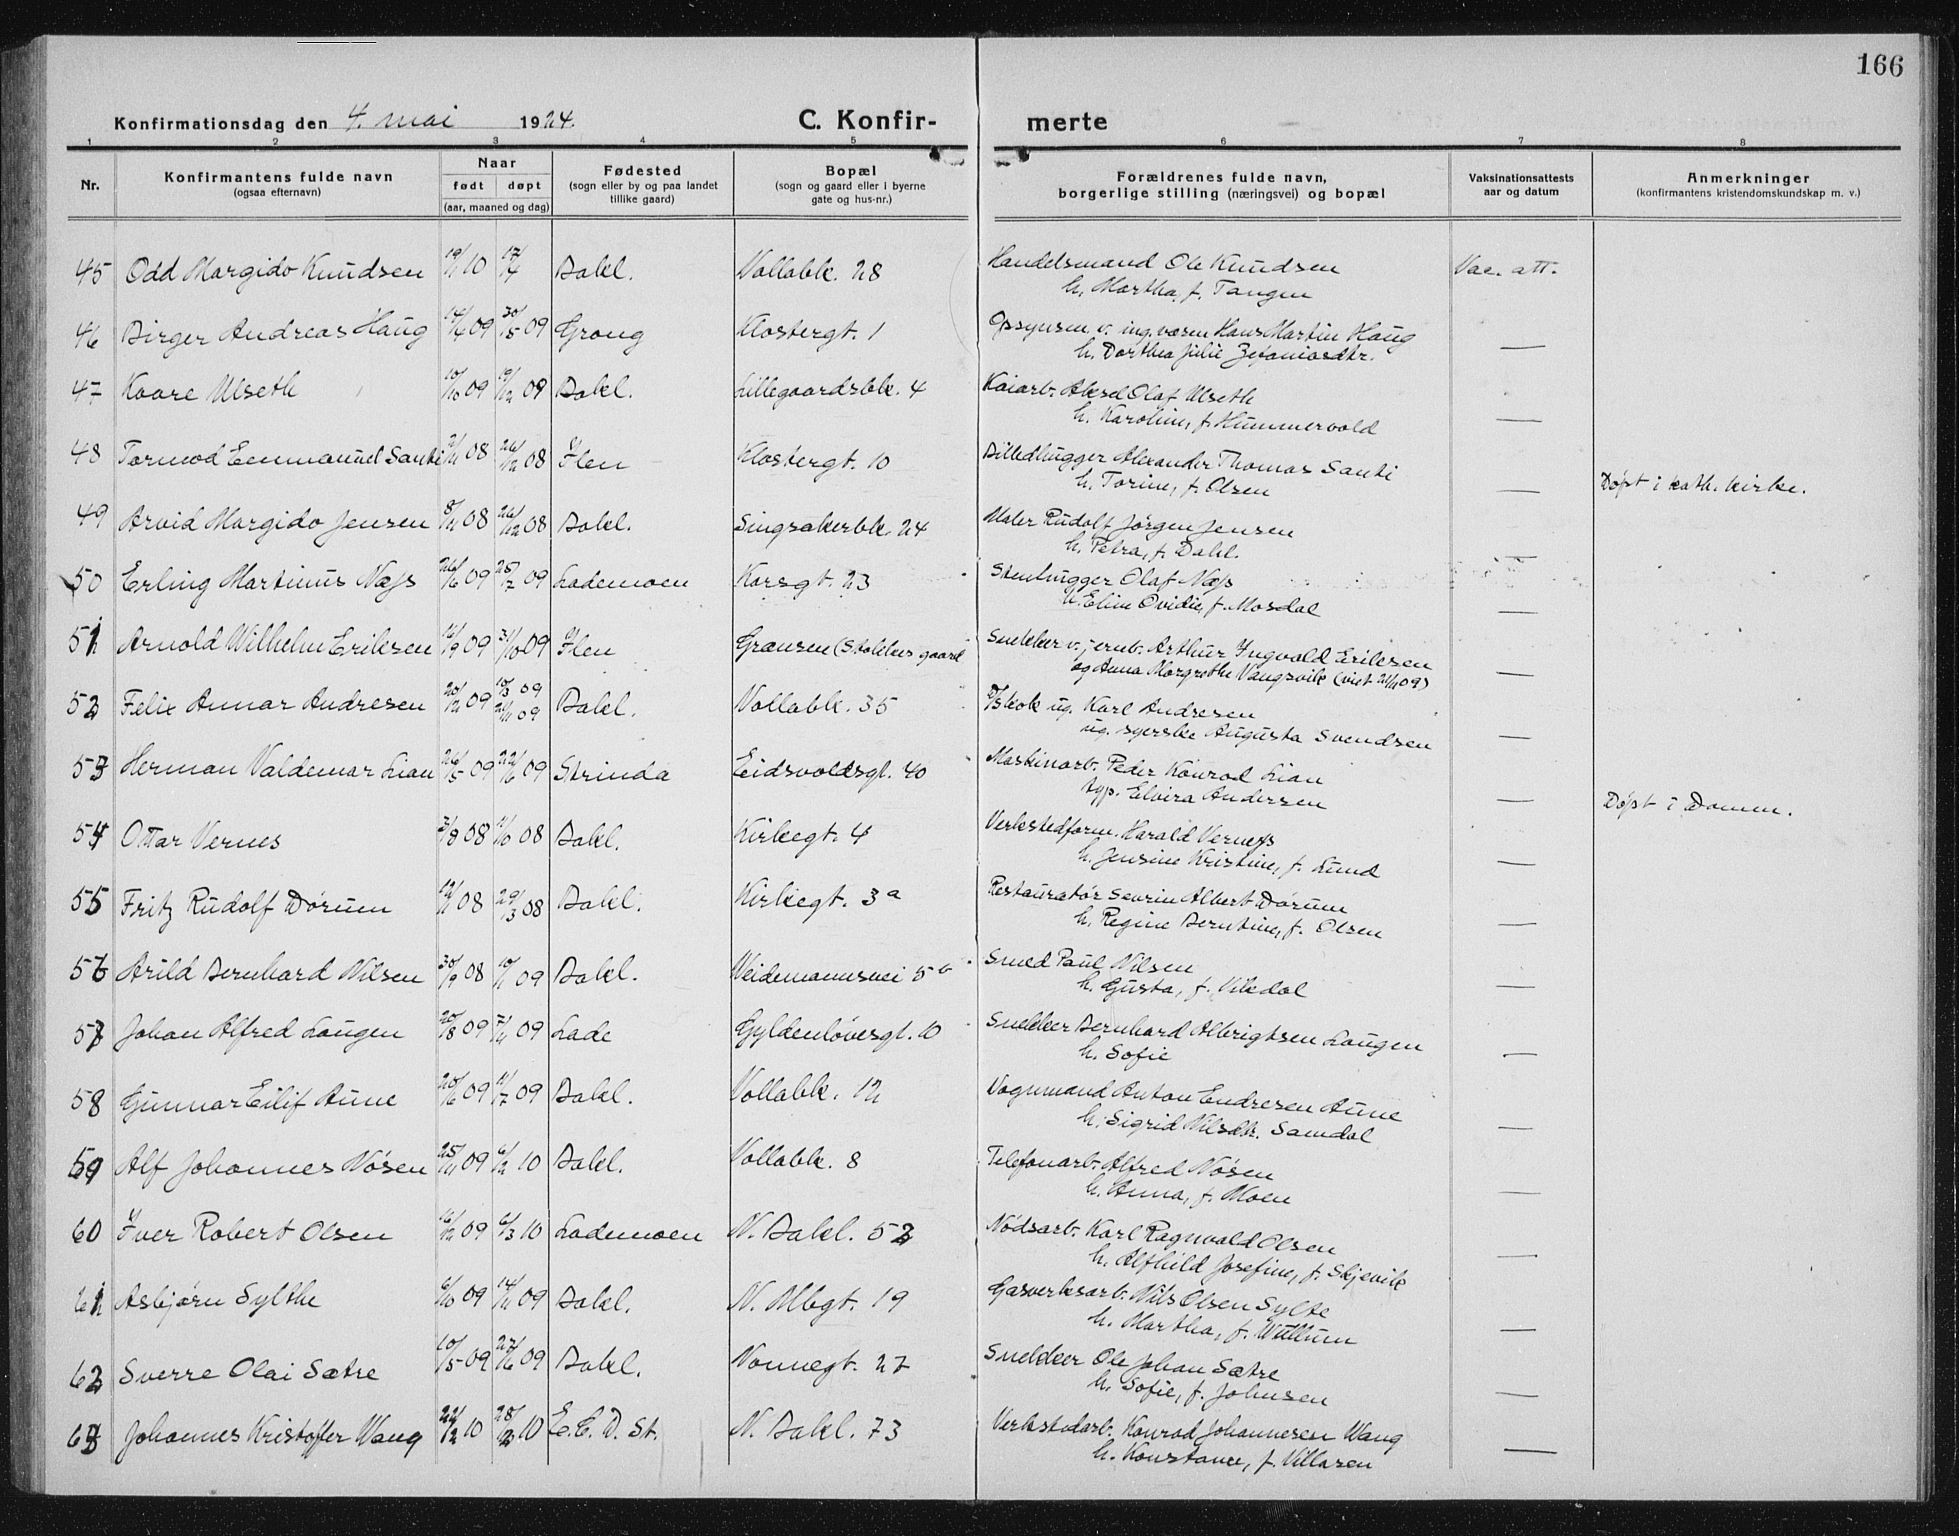 166
Konfirmationsdag den 4. mai 1924. C. Konfir- merte
1 2 3 4 5 6 7 8
Nr. Konfirmantens fulde navn (ogsaa efternavn) Naar født døpt (aar, maaned og dag) Fødested (sogn eller by og paa landet tillike gaard) Bopæl (sogn og gaard eller i byerne gate og hus-nr.) Forældrenes fulde navn, borgerlige stilling (næringsvei) og bopæl Vaksinationsattests aar og datum Anmerkninger (konfirmantens kristendomskundskap m. v.)
45 Odd Margido Knudsen 19/1 10 17/4 Bakl. Vollabk. 28 Handelsmand Ole Knudsen Vac. att.
h. Martha, f. Tangen
46 Birger Andreas Haug 14/4 09 30/5 09 Grong Klostergt. 1 Opsynsm. v. ing.væsen Hans Martin Haug
h. Dorthea Julie Zefaniasdtr. —
47 Kaare Ulseth 10/10 09 19/12 09 Bakl. Lillegaardsbk. 4 Kaiarb. Aksel Olaf Ulseth
h. Karoline, f. Hummervold —
48 Tormod Emmanuel Santi 2/11 08 26/12 08 Ilen Klostergt. 10 Billedhugger Alexander Thomas Santi
h. Torine, f. Olsen — Døpt i kath. kirke.
49 Arvid Margido Jensen 8/11 08 26/12 08 Bakl. Singsakerbk. 24 Maler Rudolf Jørgen Jensen
h. Petra, f. Dahl. —
50 Erling Martinus Næss 26/6 09 25/7 09 Lademoen Korsgt. 23 Stenhugger Olaf Næss
h. Eline Ovidie, f. Mosdal —
51 Arnold Wilhelm Eriksen 12/9 09 31/10 09 Ilen Grænsen (Stokkes gaard Snekker v. jernb. Arthur Ingvald Eriksen
og Anna Margrethe Vangsvik (viet 21/11 09) —
52 Felix Annar Andresen 20/2 09 10/3 09 21/11 09 Bakl. Vollabk. 35 Karl Andresen
ug. syerske Augusta Svendsen —
53 Herman Valdemar Lian 26/5 09 22/6 09 Strinda Eidsvoldsgt. 40 Maskinarb. Peder Konrad Lian
typ. Elvira Andersen — Døpt i Domen.
54 Ottar Vernes 3/8 08 11/10 08 Bakl. Kirkegt. 4 Verkstedform. Harald Verness
h. Jensine Kristine, f. Lund —
55 Fritz Rudolf Dørum 12/1 08 29/3 08 Bakl. Kirkegt. 3a Restauratør Sevrin Albert Dørum
h. Regine Berntine, f. Olsen —
56 Arild Bernhard Nilsen 30/9 08 10/1 09 Bakl. Weidemannsvei 5b Smed Paul Nilsen
h. Gusta, f. Vikdal —
57 Johan Alfred Laugen 20/8 09 7/11 09 Lade Gyldenløvesgt. 10 Snekker Bernhard Albrigtsen Laugen
h. Sofie —
58 Gunnar Eilif Aune 20/6 09 11/7 09 Bakl. Vollabk. 12 Vognmand Anton Endresen Aune
h. Sigrid Nilsdtr. Samdal —
59 Alf Johannes Nøsen 25/11 09 6/2 10 Bakl. Vollabk. 8 Telefonarb. Alfred Nøsen
h. Anna, f. Moen —
60 Iver Robert Olsen 16/12 09 6/3 10 Lademoen N. Bakl. 52 Nødsarb. Karl Ragnvald Olsen
h. Alfhild Josefine, f. Skjevik —
61 Asbjørn Sylthe 6/10 09 14/11 09 Bakl. N. Albgt. 19 Gasverksarb. Nils Olsen Sylte
h. Martha, f. Wullum —
62 Sverre Olai Sætre 10/5 09 27/6 09 Bakl. Nonnegt. 27 Snekker Ole Johan Sætre
h. Sofie, f. Johnsen —
63 Johannes Kristoffer Wang 22/2 10 28/3 10 E. C. D. St. N. Bakl. 73 Verkstedarb. Konrad Johannesen Wang
h. Konstance, f. Villasen —